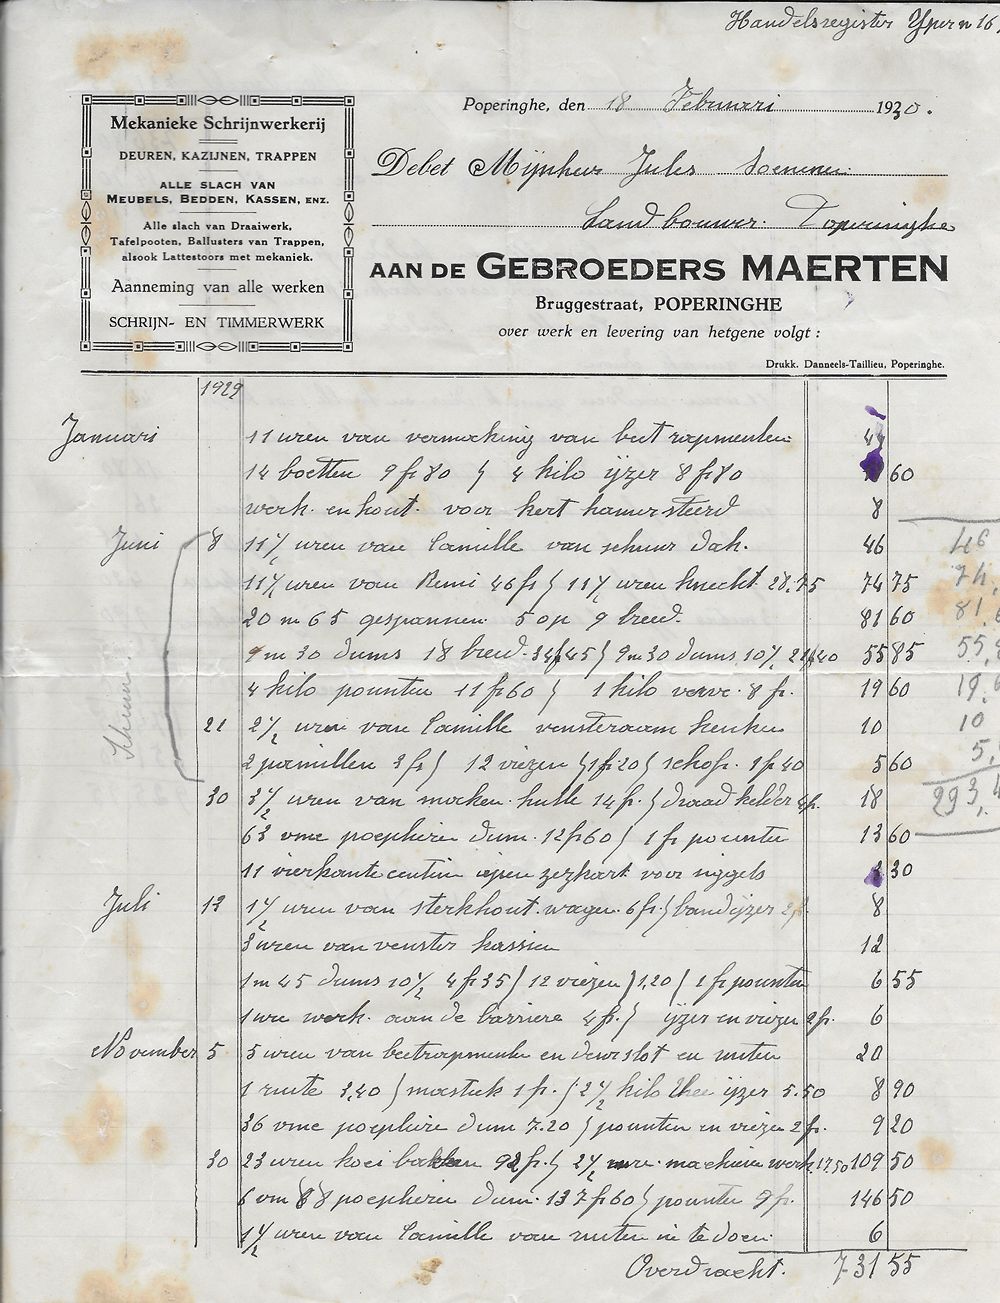 Handelsregister Yper n 16
Mekanieke Schrijnwerkerij
DEUREN, KAZIJNEN, TRAPPEN
ALLE SLACH VAN
MEUBELS, BEDDEN, KASSEN, ENZ.
Alle slach van Draaiwerk,
Tafelpooten, Ballusters van Trappen,
alsook Lattestoors met mekaniek.
Aanneming van alle werken
SCHRIJN- EN TIMMERWERK
Poperinghe, den 18 Februari 1930.
Debet Mijnheer Jules
Landbouwer. Poperinghe
AAN DE GEBROEDERS MAERTEN
Bruggestraat, POPERINGHE
over werk en levering van hetgene volgt :
Drukk. Danneels-Taillieu, Poperinghe.
1929
Januari 11 uren van vermaking van beet rapmenten
14 boetten 9 fr 80 4 kilo ijzer 8 fr 80 60
werk en hout voor kert hamersteerd 8
Juni 8 11½ uren van Camille van schuur dak. 46
11½ uren van Remi 46 fr 11½ uren knecht 28.75 74 75
20 m 65 gespannen 5 op 9 breed. 81 60
9 m 30 dums 18 breed 34 fr 45 9 m 30 dums 10½ 21 fr 40 55 85
4 kilo pounten 11 fr 60 1 kilo verve 8 fr. 19 60
21 2½ uren van Camille vensteraam keuken 10
2 pamillen 3 fr 12 viezen 1 fr 20 1 schof. 1 fr 40 5 60
30 3½ uren van maken hulle 14 fr. draad kelder 4 fr. 18
63 vme poephiere dum. 12 fr 60 1 fr pounten 13 60
11 vierkante centim 30
Juli 12 1½ uren van sterkhout wagen 6 fr. bandijzer 2 fr. 8
3 uren van venster kassien 12
1 m 45 dums 10½ 4 fr 35 12 viezen 1,20 1 fr pounten 6 55
1 ure werk aan de barriere 4 fr. ijzer en viezen 2 fr. 6
November 5 5 uren van beetrapmenten en deurslot en ruiten 20
1 ruite 2,40 mastiek 1 fr. 2½ kilo ijzer 5.50 8 90
36 vme poephiere dum 7.20 pounten en viezen 2 fr. 9 20
30 23 uren koei bakken 92 fr. 2½ ure machiene werk. 17.50 109 50
6 vm 88 poephiere dum. 137 fr 60 pounten 9 fr. 146 50
1½ uren van Camille van ruiten in te doen 6
Overdracht. 731 55
Schuur.
46
74,
81,
55,
19,
10
5,
293,4